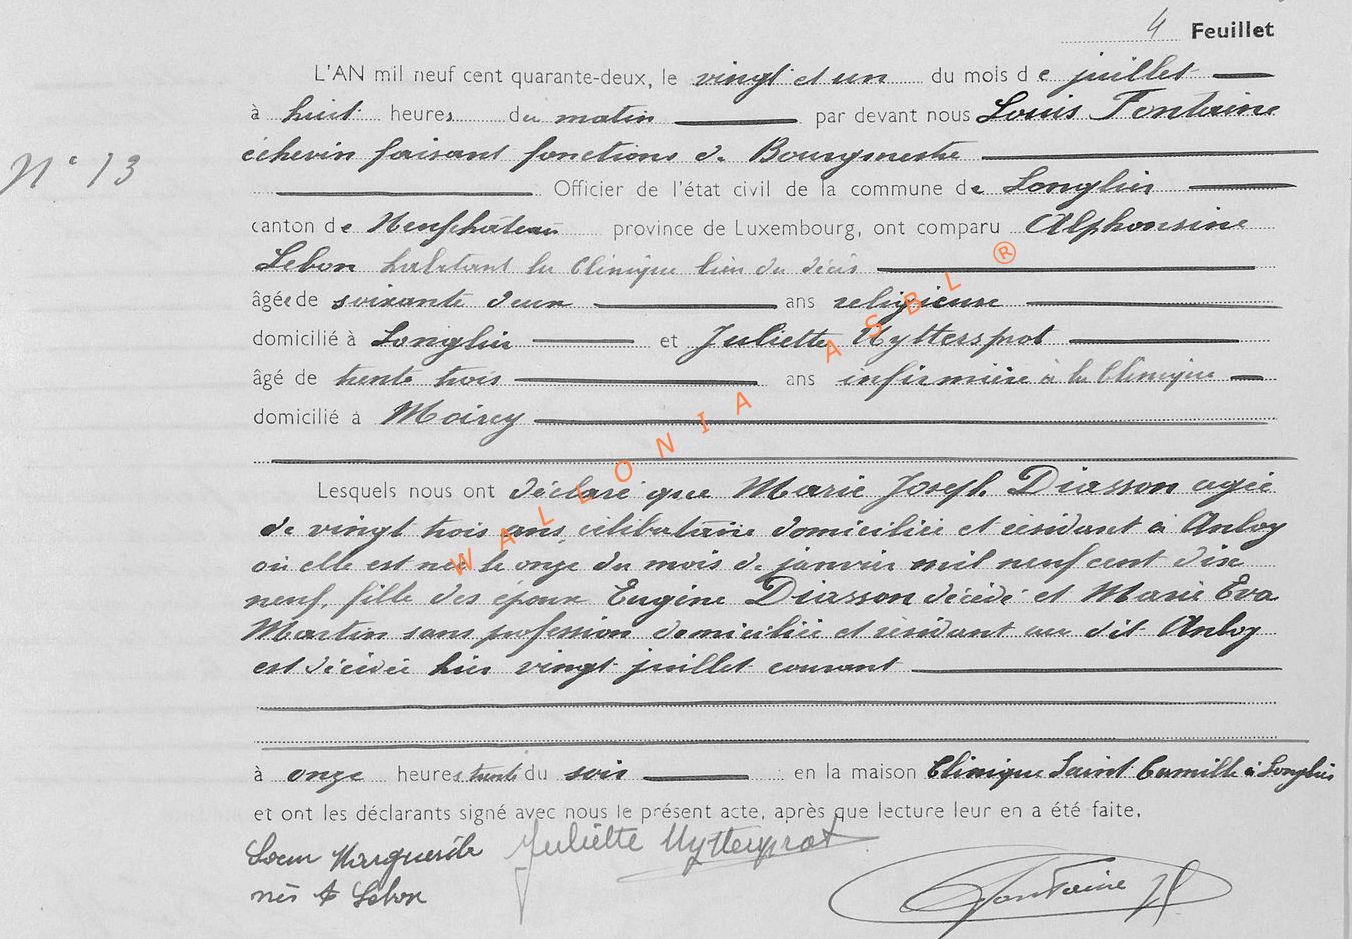 4 Feuillet
L'AN mil neuf cent quarante-deux, le vingt et un du mois de juillet
à huit heures du matin par devant nous Louis Fontaine
échevin faisant fonctions de Bourgmestre
N° 13
Officier de l'état civil de la commune de Longlier
canton de Neufchâteau province de Luxembourg, ont comparu Alphonsine
Lebon habitant la Clinique lieu du décès
âgée de soixante deux ans religieuse
domicilié à Longlier et Juliette Uyttersprot
âgé de trente trois ans infirmière à la Clinique
domicilié à Moircy
Lesquels nous ont déclaré que Marie Joseph Diasson agée
de vingt trois ans, célibataire domiciliée et résidant à Anloy
où elle est née le onze du mois de janvier mil neuf cent dix
neuf, fille des époux Eugène Diasson décédé et Marie Eva
Martin sans profession domiciliée et résidant au dit Anloy
est décédée hier vingt juillet courant
à onze heures trente du soir en la maison Clinique Saint Camille à Longlier
et ont les déclarants signé avec nous le présent acte, après que lecture leur en a été faite.
Soeur Marguerite Juliette Uyttersprot
née A Lebon
Fontaine
WALLONIA ASBL ®